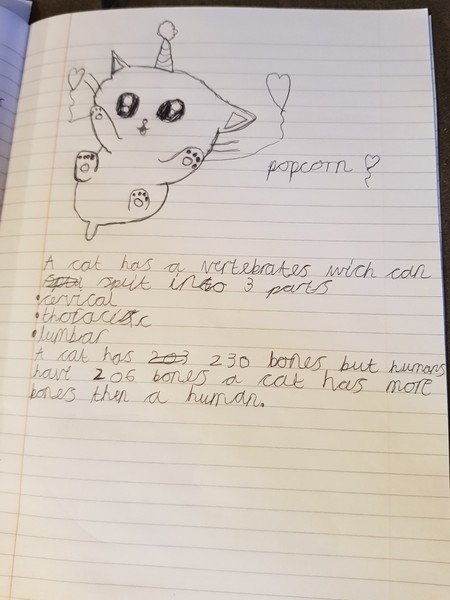 popcorn
A cat has a vertebrates wich can
split into 3 parts
•cervical
•thoracic
•lumbar
A cat has 203 230 bones but humans
have 206 bones a cat has more
bones then a human.